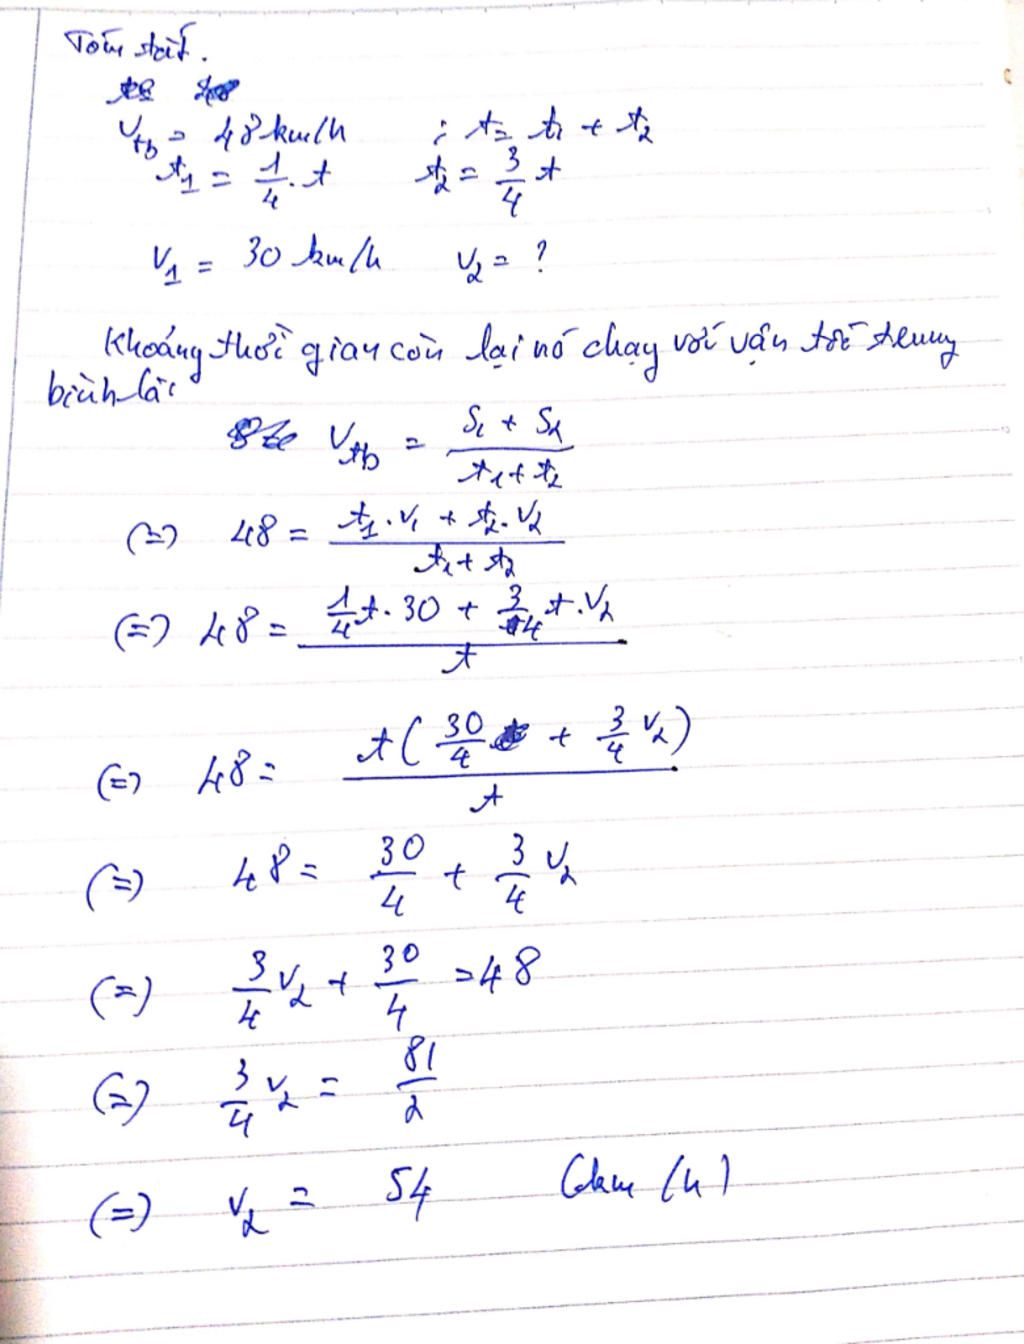 Tóm tắt.
Vtb = 48 km/h ; t = t1 + t2
t1 = 1/4 . t t2 = 3/4 t
V1 = 30 km/h V2 = ?
Khoảng thời gian còn lại nó chạy với vận tốc trung
bình là:
Vtb = (S1 + S2)/(t1 + t2)
(=) 48 = (t1 . V1 + t2 . V2)/(t1 + t2)
(=) 48 = (1/4 t . 30 + 3/4 t . V2)/t
(=) 48 = t(30/4 + 3/4 V2)/t
(=) 48 = 30/4 + 3/4 V2
(=) 3/4 V2 + 30/4 = 48
(=) 3/4 V2 = 81/2
(=) V2 = 54 (km/h)